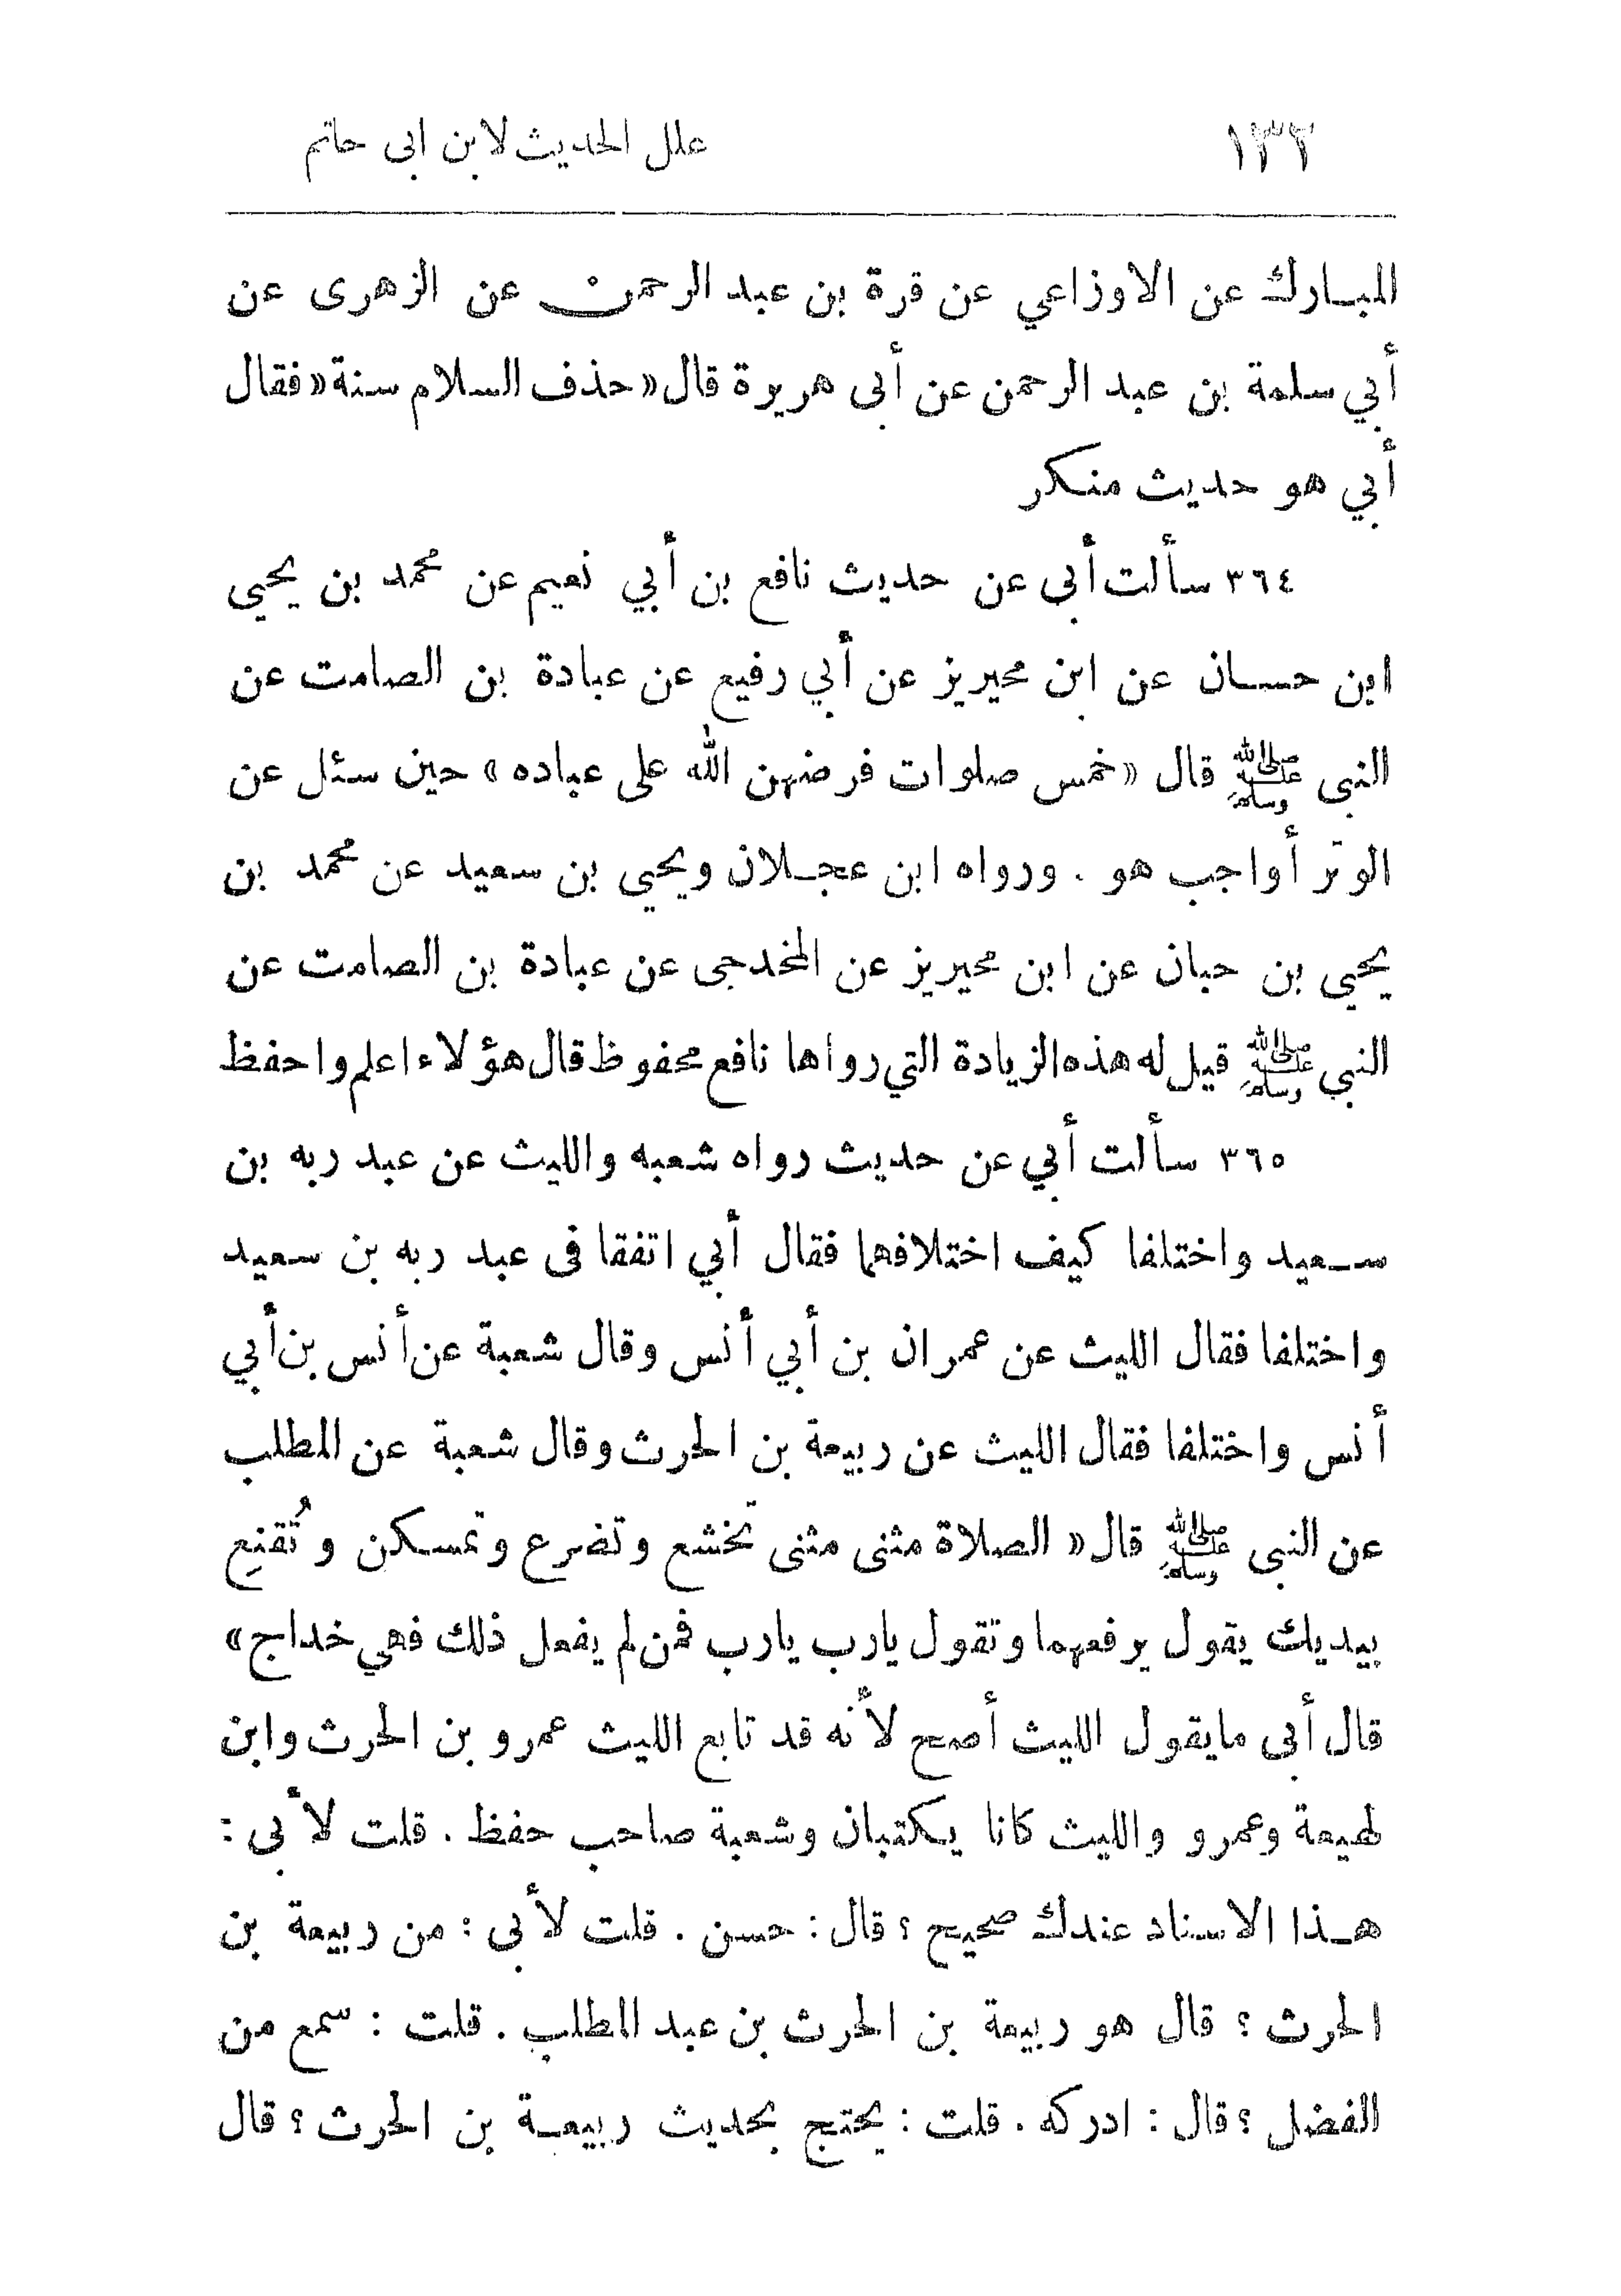 ١٣٢ علل الحديث لابن ابى حاتم
المبارك عن الاوزاعي عن قرة بن عبد الرحمن عن الزهرى عن
أبي سلمة بن عبد الرحمن عن أبى هريرة قال «حذف السلام سنة» فقال
أبي هو حديث منكر
٣٦٤ سألت أبى عن حديث نافع بن أبي نعيم عن محمد بن يحيى
ابن حسان عن ابن محيريز عن أبي رفيع عن عبادة بن الصامت عن
النبى ﷺ قال «خمس صلوات فرضهن الله على عباده» حين سئل عن
الوتر أواجب هو . ورواه ابن عجلان ويحيى بن سعيد عن محمد بن
يحيى بن حبان عن ابن محيريز عن المخدجى عن عبادة بن الصامت عن
النبي ﷺ قيل له هذه الزيادة التي رواها نافع محفوظ قال هؤلاء اعلم واحفظ
٣٦٥ سألت أبي عن حديث رواه شعبه والليث عن عبد ربه بن
سعيد واختلفا كيف اختلافهما فقال أبي اتفقا فى عبد ربه بن سعيد
واختلفا فقال الليث عن عمران بن أبي أنس وقال شعبة عن أنس بن أبي
أنس واختلفا فقال الليث عن ربيعة بن الحرث وقال شعبة عن المطلب
عن النبى ﷺ قال «الصلاة مثنى مثنى تخشع وتضرع وتمسكن وتُقنِع
بيديك يقول يرفعهما وتقول يارب يارب فمن لم يفعل ذلك فهي خداج»
قال أبى مايقول الليث أصح لأنه قد تابع الليث عمرو بن الحرث وابن
لهيعة وعمرو والليث كانا يكتبان وشعبة صاحب حفظ . قلت لأبى :
هذا الاسناد عندك صحيح ؟ قال : حسن . قلت لأبى : من ربيعة بن
الحرث ؟ قال هو ربيعة بن الحرث بن عبد المطلب . قلت : سمع من
الفضل ؟ قال : ادركه . قلت : يحتج بحديث ربيعة بن الحرث ؟ قال